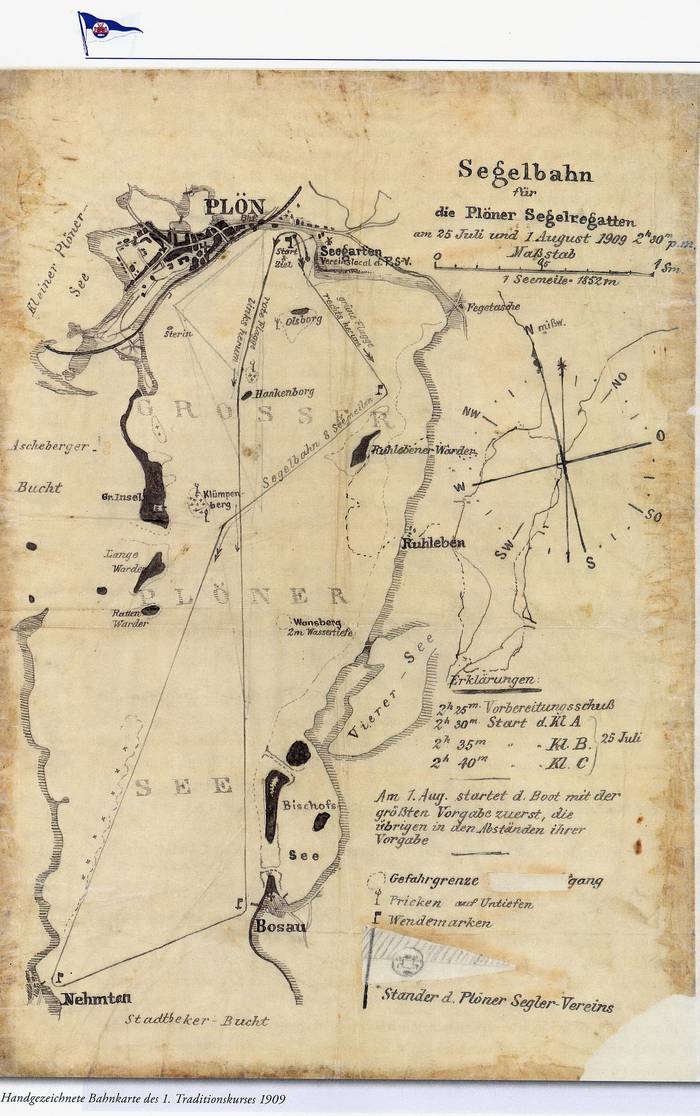 Segelbahn
für
die Plöner Segelregatten
am 25 Juli und 1 August 1909 2ʰ30ᵐ p.m.
Maßstab
0 0,5 1 Sm.
1 Seemeile = 1852 m
PLÖN
Kleiner Plöner-
See
Start
Ziel
Seegarten
Vereinslocal d. P.S.V.
Fegetasche
rote Flagge
links herum
grüne Flagge
rechts herum
Olsborg
Sterin
Hankenborg
GROSSER
Segelbahn 8 Seemeilen
Ascheberger-
Bucht
Ruhlebener Warder
Gr. Insel
Klümpen
berg
Ruhleben
Lange
Warder
PLÖNER
Ratten
Warder
Wansberg
2m Wassertiefe
Vierer-See
SEE
Bischofs
See
Bosau
Nehmten
Stadtbeker-Bucht
N missw.
NO
NW
O
W
SO
SW
S
Erklärungen:
2ʰ 25ᵐ Vorbereitungsschuß
2ʰ 30ᵐ Start d. Kl. A
2ʰ 35ᵐ " " Kl. B.
2ʰ 40ᵐ " " Kl. C
25 Juli
Am 1. Aug. startet d. Boot mit der
größten Vorgabe zuerst, die
übrigen in den Abständen ihrer
Vorgabe
Gefahrgrenze gang
Pricken auf Untiefen
Wendemarken
Stander d. Plöner Segler-Vereins
Handgezeichnete Bahnkarte des 1. Traditionskurses 1909